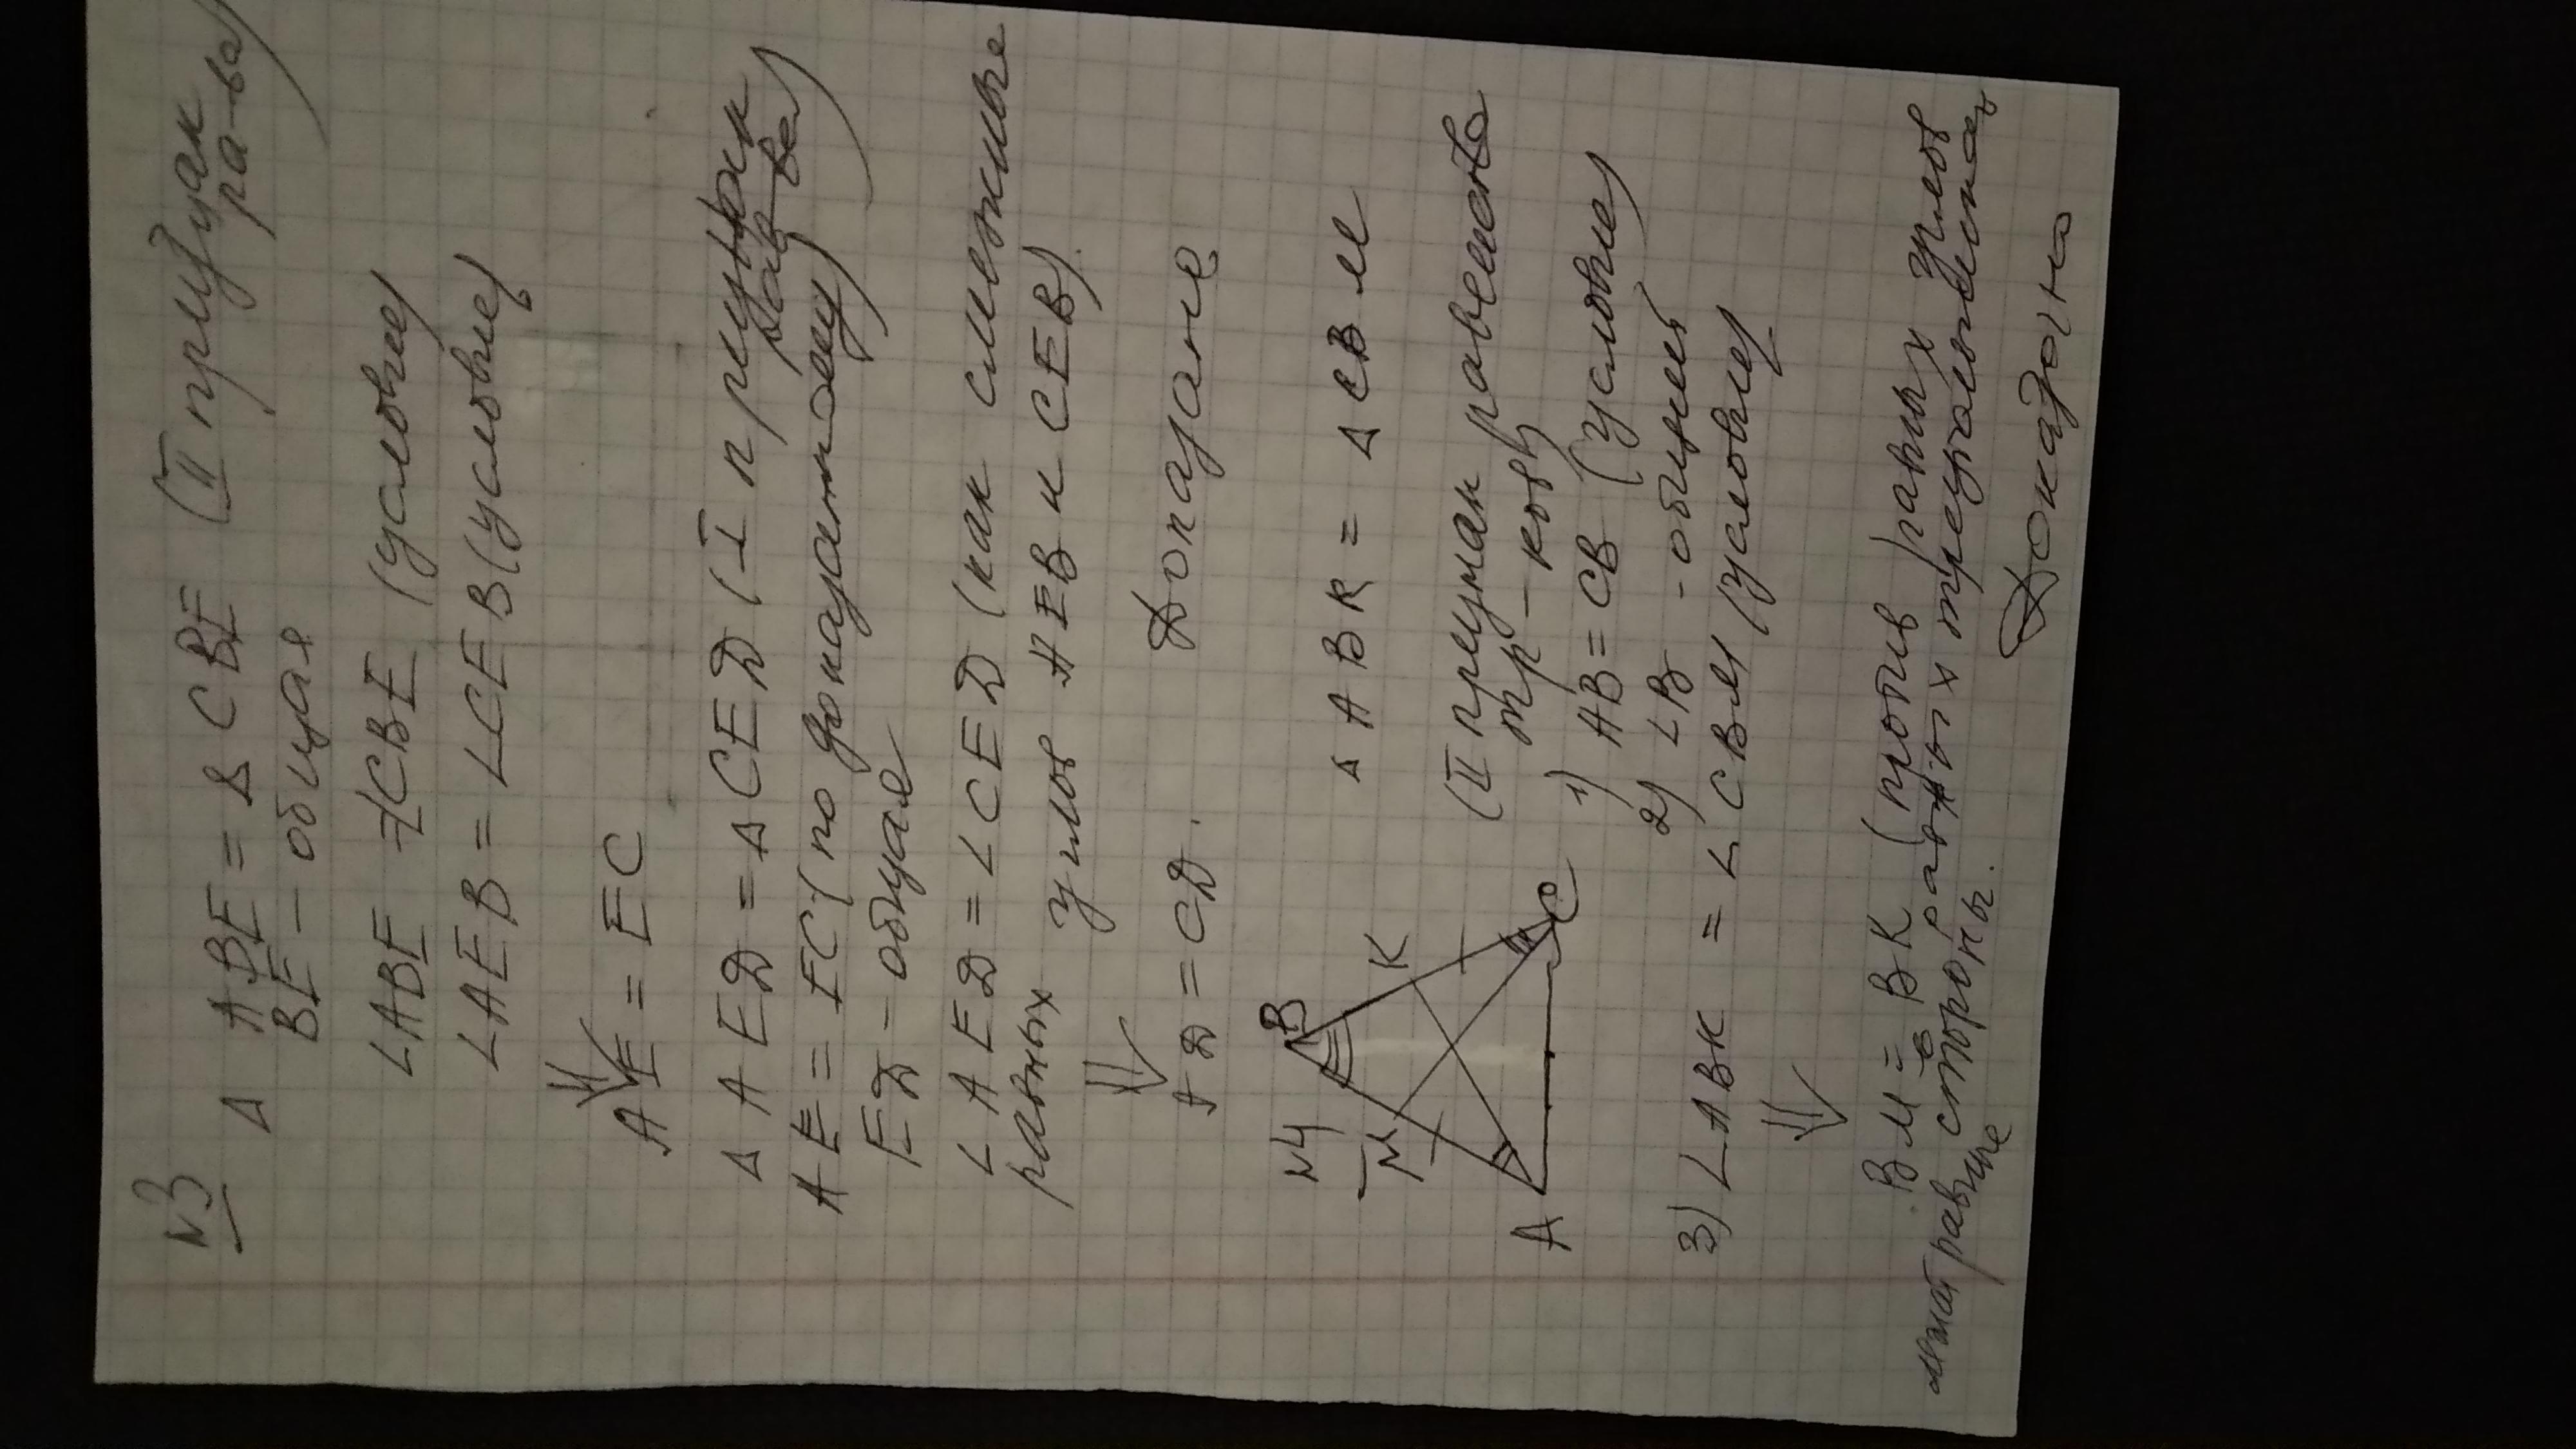 №3
Δ ABE = Δ CBE (II признак ра-ва)
BE - общая
∠ABE = ∠CBE (условие)
∠AEB = ∠CEB (условие)
⇓
AE = EC
Δ AED = Δ CED (I признак рав-ва)
AE = EC (по доказанному)
ED - общая
∠AED = ∠CED (как смежные
равных углов AEB и CEB)
⇓
AD = CD. Доказано
№4
B
M K
A C
Δ ABK = Δ CBM
(II признак равенства
тр-ков)
1) AB = CB (условие)
2) ∠B - общий
3) ∠ABK = ∠CBM (условие)
⇓
BM = BK (против равных углов
в равных треугольниках
лежат равные стороны.
Доказано